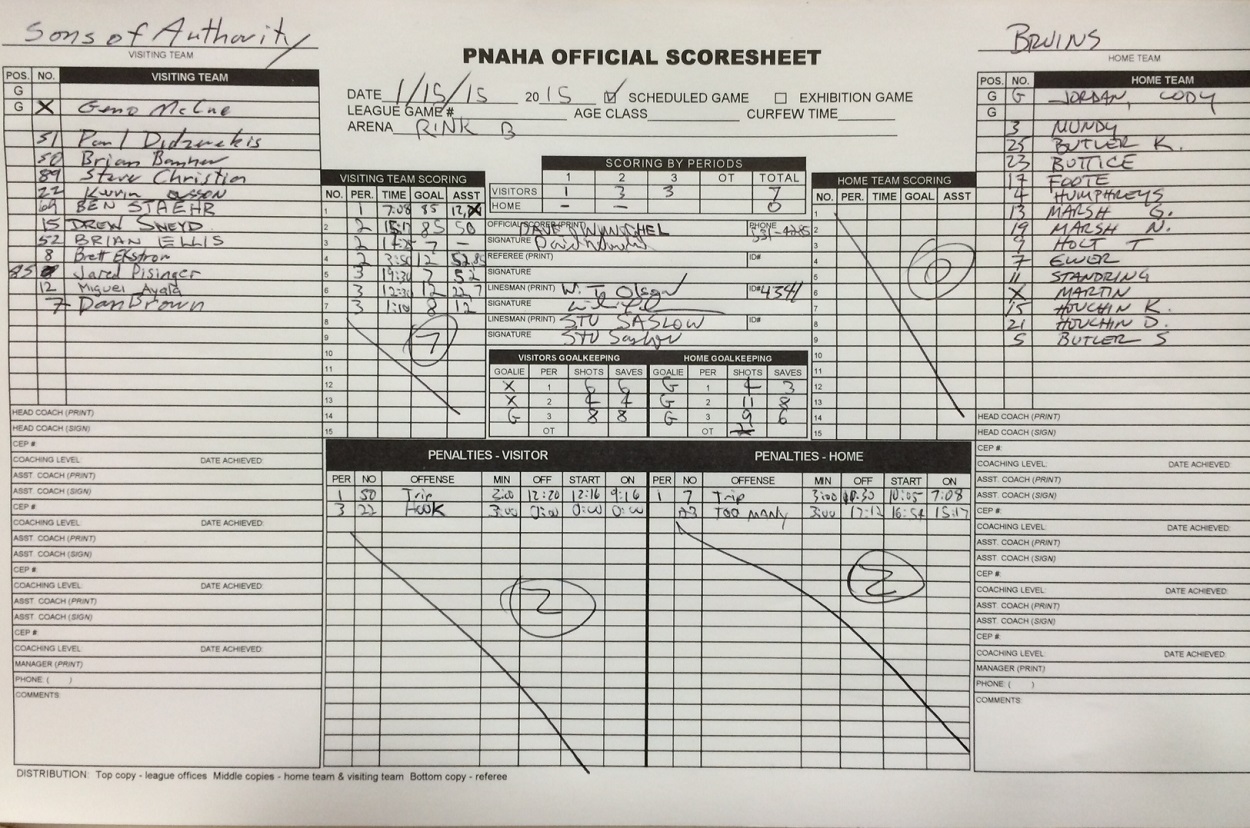 Sons of Authority
VISITING TEAM
BRUINS
HOME TEAM
PNAHA OFFICIAL SCORESHEET
DATE 1/15/15 2015 SCHEDULED GAME EXHIBITION GAME
LEAGUE GAME # AGE CLASS CURFEW TIME
ARENA RINK B
POS. NO. VISITING TEAM
G
G X Geno McCue
51 Paul
50 Brian
89 Steve Christian
22 Kevin
69 BEN STAEHR
15 DREW SNEYD
52 BRIAN ELLIS
8 Brett Ekstrom
85 Jared Pisinger
12 Miguel Ayala
7 Dan Brown
HEAD COACH (PRINT)
HEAD COACH (SIGN)
CEP #
COACHING LEVEL DATE ACHIEVED:
ASST. COACH (PRINT)
ASST. COACH (SIGN)
CEP #
COACHING LEVEL: DATE ACHIEVED:
ASST. COACH (PRINT)
ASST. COACH (SIGN)
CEP #:
COACHING LEVEL DATE ACHIEVED:
ASST. COACH (PRINT)
ASST. COACH (SIGN)
CEP #:
COACHING LEVEL: DATE ACHIEVED:
MANAGER (PRINT)
PHONE: ( )
COMMENTS
VISITING TEAM SCORING
NO. PER. TIME GOAL ASST
1 1 7:08 85 12,
2 2 85 50
3 2 7 –
4 2 3:50 12
5 3 19:30 7 52
6 3 12 22 7
7 3 1:10 8 12
8
9
10
11
12
13
14
15
7
SCORING BY PERIODS
1 2 3 OT TOTAL
VISITORS 1 3 3 7
HOME – – 0
OFFICIAL SCORER (PRINT) DAVE PHONE
SIGNATURE
REFEREE (PRINT) ID#
SIGNATURE
LINESMAN (PRINT) W. Ty Olson ID# 4341
SIGNATURE
LINESMAN (PRINT) STU SASLOW ID#
SIGNATURE Stu Saslow
VISITORS GOALKEEPING
GOALIE PER SHOTS SAVES
X 1 6 6
X 2 4 4
G 3 8 8
OT
HOME GOALKEEPING
GOALIE PER SHOTS SAVES
G 1 4 3
G 2 11 8
G 3 9 6
OT
HOME TEAM SCORING
NO. PER. TIME GOAL ASST
1
2
3
4
5
6
7
8
9
10
11
12
13
14
15
0
PENALTIES - VISITOR
PER NO OFFENSE MIN OFF START ON
1 50 Trip 3:00 12:20 12:16 9:16
3 22 Hook 3:00 0:00 0:00 0:00
2
PENALTIES - HOME
PER NO OFFENSE MIN OFF START ON
1 7 Trip 3:00 10:30 10:05 7:08
TOO MANY 3:00 17:12 16:54 15:17
2
POS. NO. HOME TEAM
G G JORDAN, CODY
G
3 MUNDY
25 BUTLER K.
23 BUTTICE
17 FOOTE
4 HUMPHREYS
13 MARSH G.
19 MARSH N.
9 HOLT T
7 EWER
11 STANDRING
X MARTIN
15 HOUCHIN K.
21 HOUCHIN D.
5 BUTLER S
HEAD COACH (PRINT)
HEAD COACH (SIGN)
CEP #:
COACHING LEVEL: DATE ACHIEVED:
ASST. COACH (PRINT)
ASST. COACH (SIGN)
CEP #:
COACHING LEVEL: DATE ACHIEVED:
ASST. COACH (PRINT)
ASST. COACH (SIGN)
CEP #:
COACHING LEVEL: DATE ACHIEVED:
ASST. COACH (PRINT)
ASST. COACH (SIGN)
CEP #:
COACHING LEVEL: DATE ACHIEVED:
MANAGER (PRINT)
PHONE: ( )
COMMENTS
DISTRIBUTION: Top copy - league offices Middle copies - home team & visiting team Bottom copy - referee